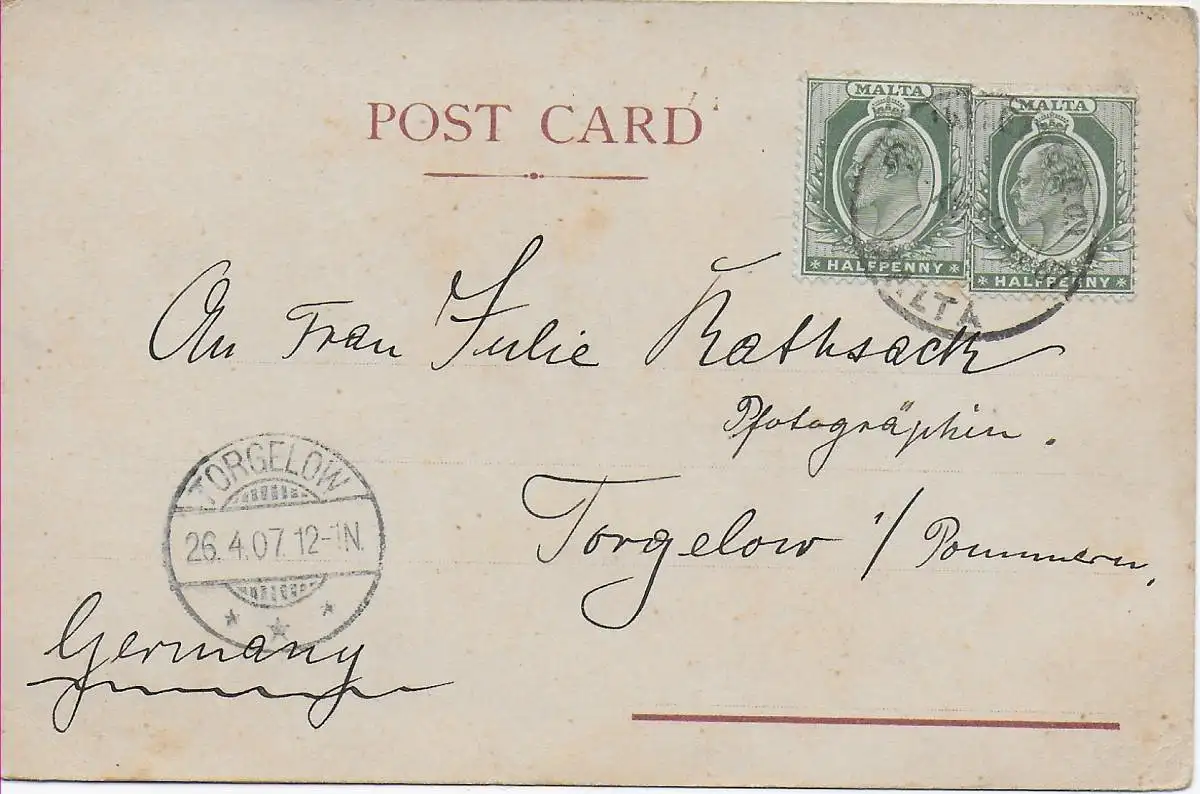 POST CARD
MALTA
HALFPENNY
MALTA
HALFPENNY
MALTA
An Frau Julie Rathsack
Pfotográphin.
Torgelow i/ Pommern,
TORGELOW
26.4.07. 12-1N.
Germany